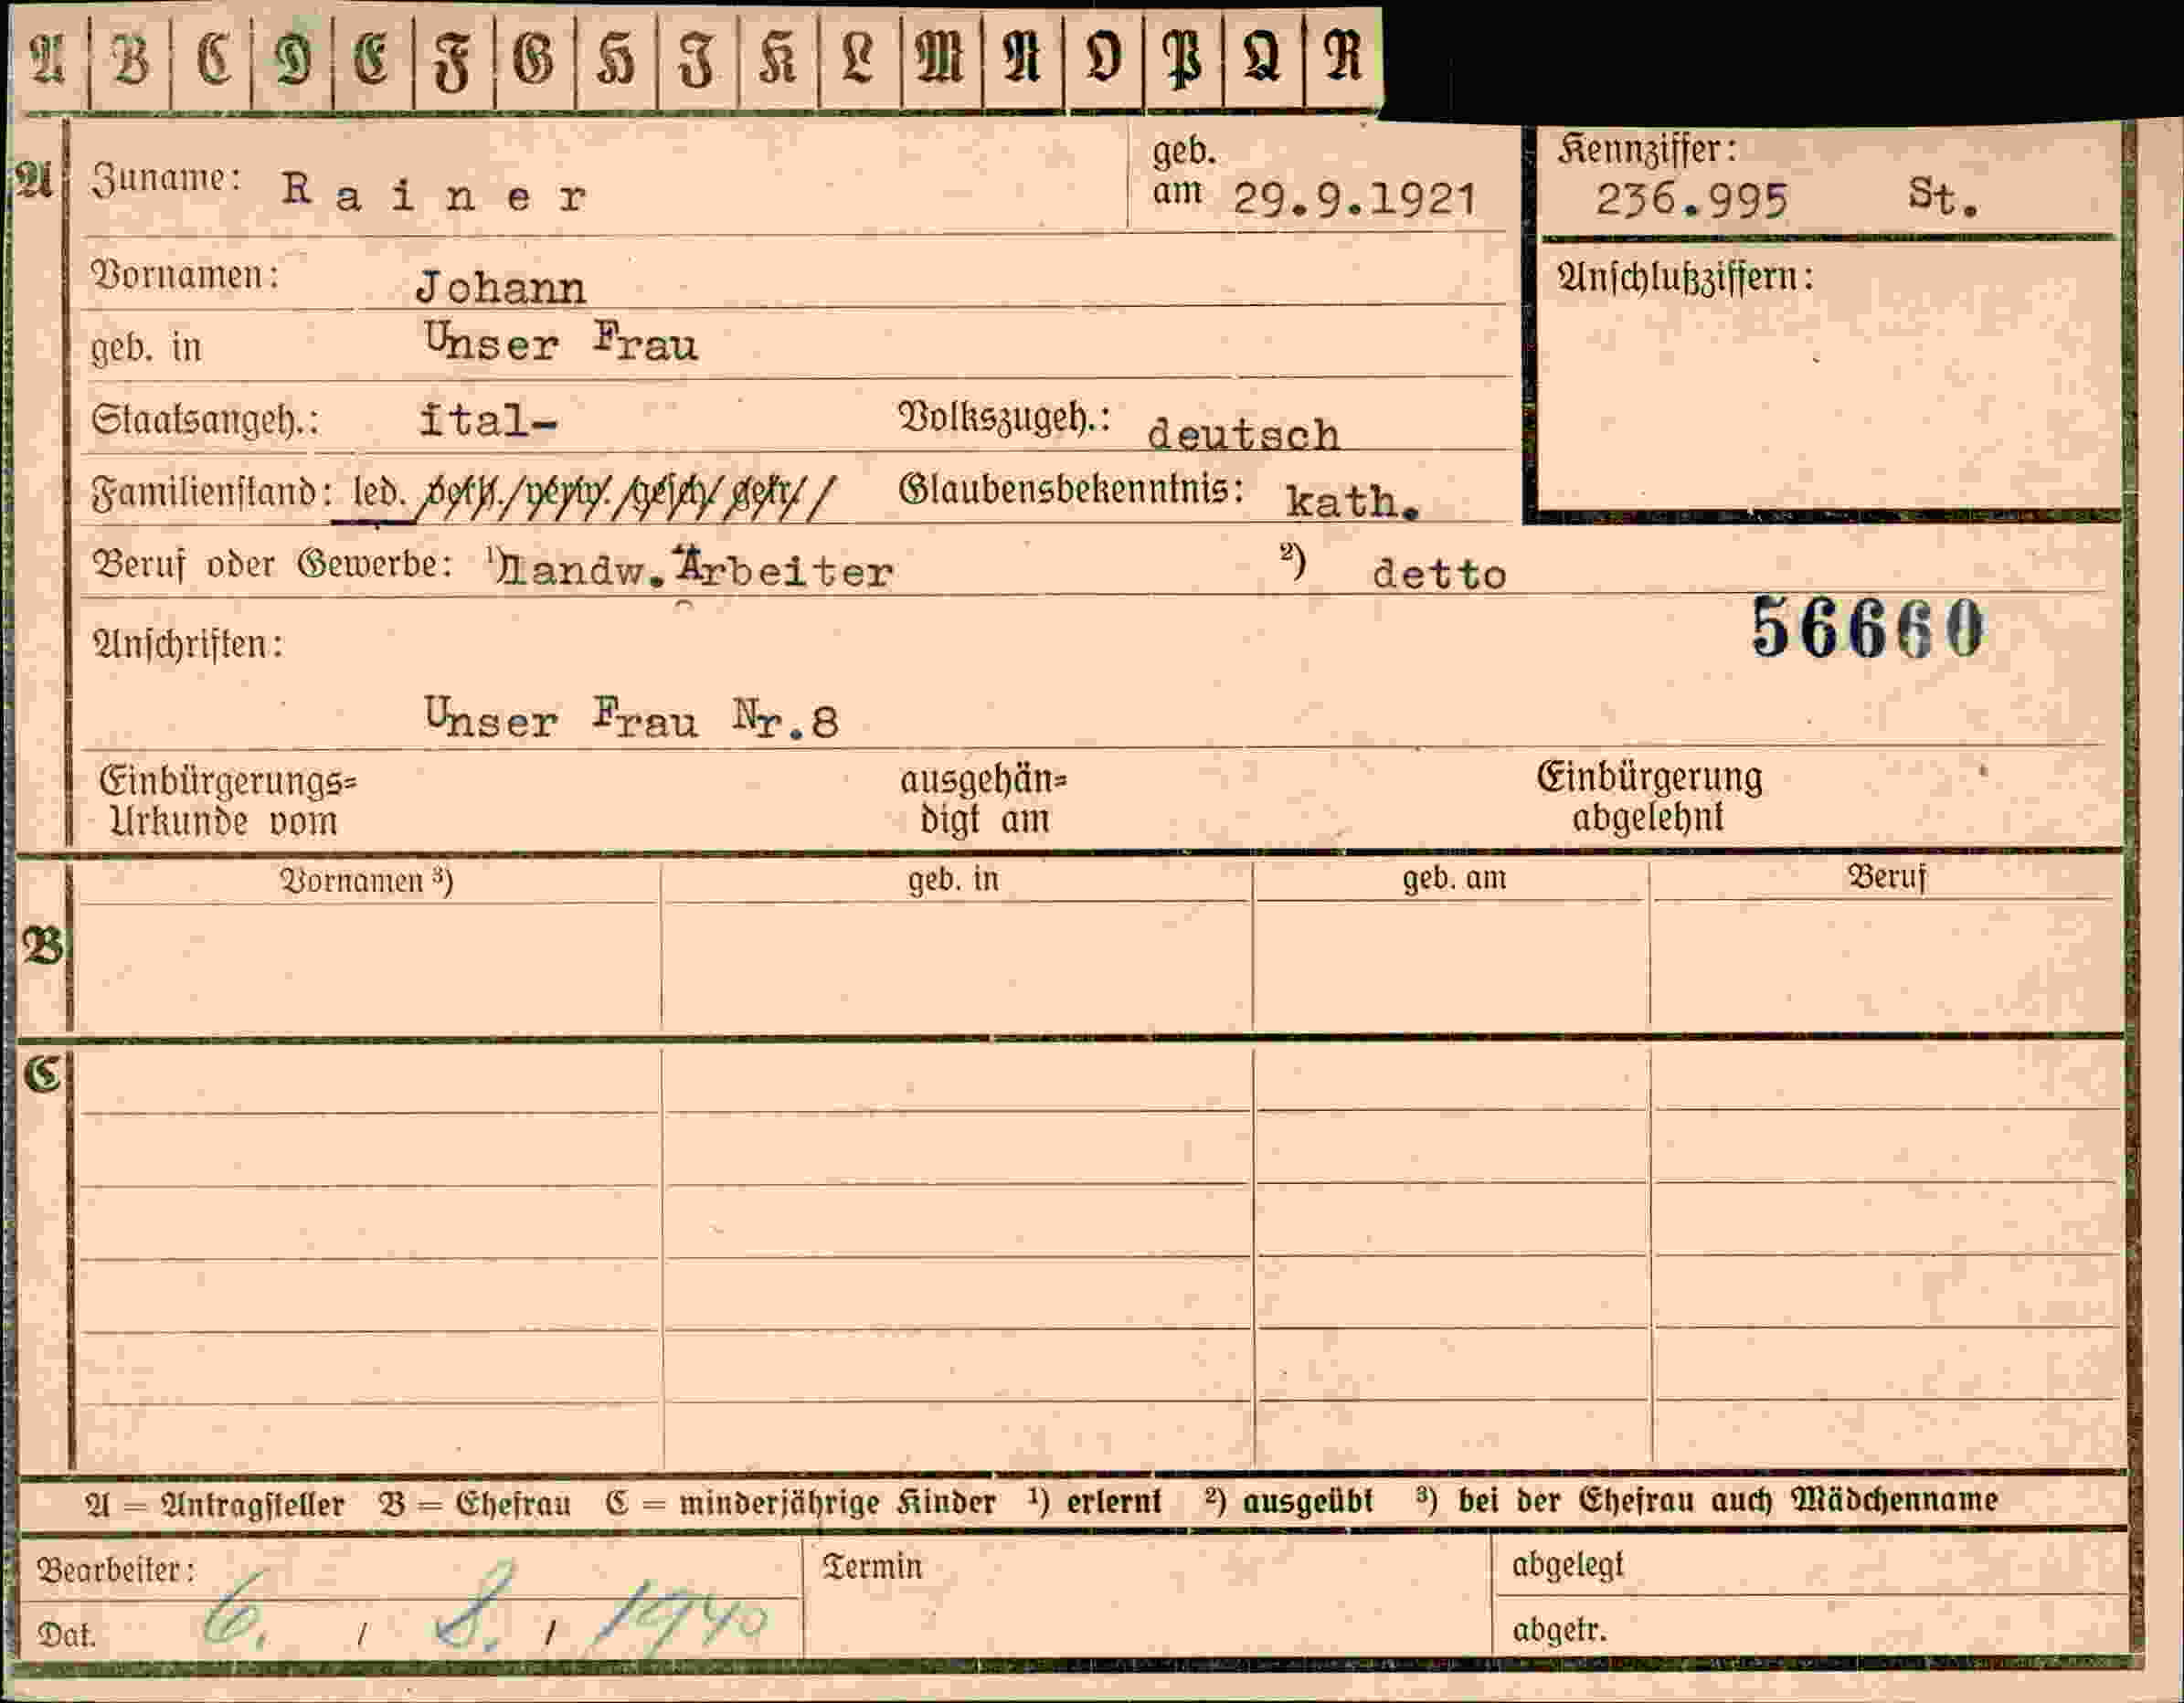 A B C D E F G H I K L M N O P Q R
A Zuname: Rainer geb. am 29.9.1921 Kennziffer: 236.995 St.
Vornamen: Johann Anschlußziffern:
geb. in Unser Frau
Staatsangeh.: ital- Volkszugeh.: deutsch
Familienstand: led. / verw. / gesch. / getr. / Glaubensbekenntnis: kath.
Beruf oder Gewerbe: ¹) landw. Arbeiter ²) detto
56660
Anschriften:
Unser Frau Nr.8
Einbürgerungs= Urkunde vom ausgehän= digt am Einbürgerung abgelehnt
Vornamen ³) geb. in geb. am Beruf
B
C
A = Antragsteller B = Ehefrau C = minderjährige Kinder ¹) erlernt ²) ausgeübt ³) bei der Ehefrau auch Mädchenname
Bearbeiter: Termin abgelegt
Dat. 6. / 8. / 1940 abgetr.